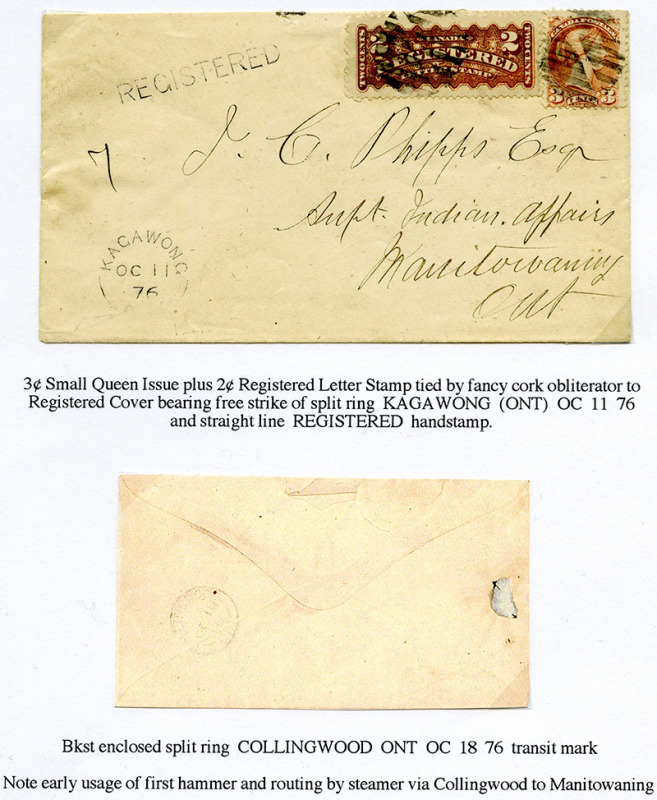 REGISTERED
2 CANADA 2
REGISTERED
LETTER STAMP
TWO CENTS
TWO CENTS
3 3
7
J. C. Phipps Esqr
Supt. Indian. Affairs
Manitowaning
Ont
KAGAWONG
OC 11
76
3¢ Small Queen Issue plus 2¢ Registered Letter Stamp tied by fancy cork obliterator to
Registered Cover bearing free strike of split ring KAGAWONG (ONT) OC 11 76
and straight line REGISTERED handstamp.
Bkst enclosed split ring COLLINGWOOD ONT OC 18 76 transit mark
Note early usage of first hammer and routing by steamer via Collingwood to Manitowaning